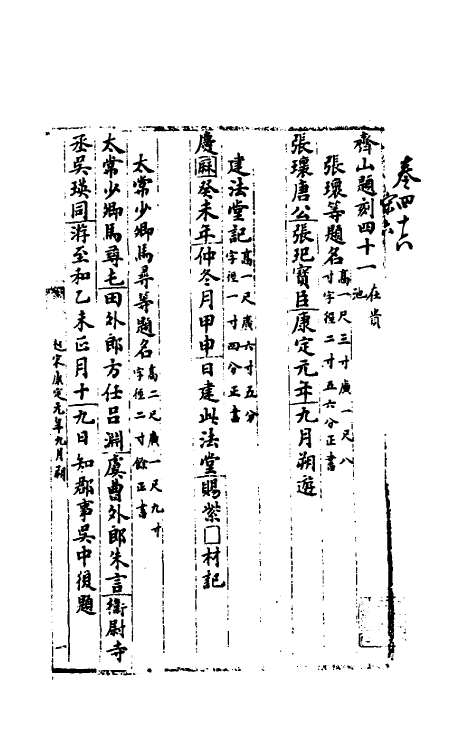 卷四十六
宋六
齊山題刻四十一在貴池
張瓌等題名高一尺三寸廣一尺八寸字徑二寸五六分正書
張瓌唐公張玘寶臣康定元年九月朔遊
建法堂記高一尺廣六寸五分字徑一寸四分正書
慶厤癸未年仲冬月甲申日建此法堂賜紫□材記
太常少卿馬尋等題名高二尺廣一尺九寸字徑二寸餘正書
太常少卿馬尋屯田外郎方任呂淵虞曹外郎朱言衛尉寺
丞吳瑛同游至和乙未正月十九日知郡事吳中復題
起宋康定元年九月朔
一